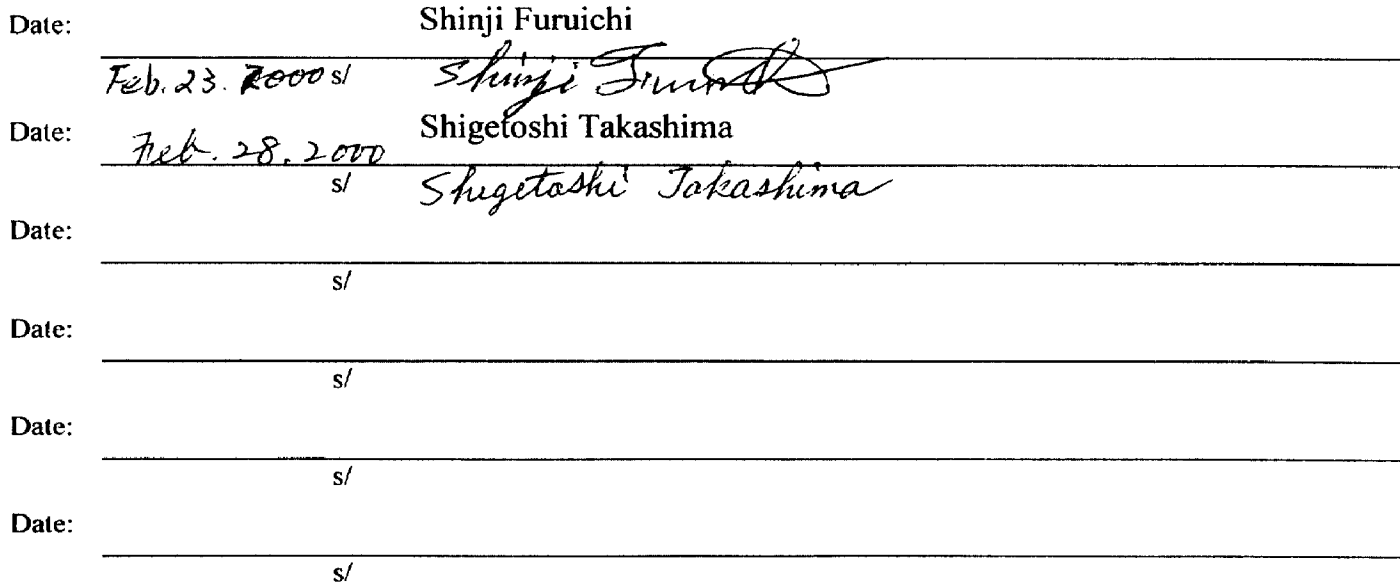 Date: Shinji Furuichi
Feb. 23. 2000 s/ Shinji Furuichi
Date: Feb. 28. 2000 Shigetoshi Takashima
s/ Shigetoshi Takashima
Date:
s/
Date:
s/
Date:
s/
Date:
s/